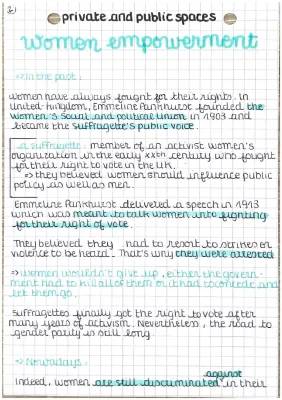 private and public spaces
women empowerment
=> In the past :
women have always fought for their rights. In
United-Kingdom, Emmeline Pankhurst founded the
Women's Social and Political Union in 1903 and
became the suffragette's public voice.
a suffragette : member of an activist women's
organization in the early xxth century who fought
for their right to vote in the UK.
=> they believed women should influence public
policy as well as men.
Emmeline Pankhurst delivered a speech in 1913
which was meant to talk women into fighting
for their right of vote.
They believed they had to resort to strikes or
violence to be heard. That's why they were arrested
=> women wouldn't give up, either the govern-
ment had to kill all of them or it had to concede and
let them go.
Suffragettes finally got the right to vote after
many years of activism. Nevertheless, the road to
gender parity is still long.
=> Nowadays :
against
Indeed, women are still discriminated in their